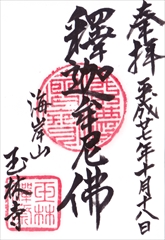 奉拝
平成十七年十月十八日
釋迦牟尼佛
海岸山
玉林寺